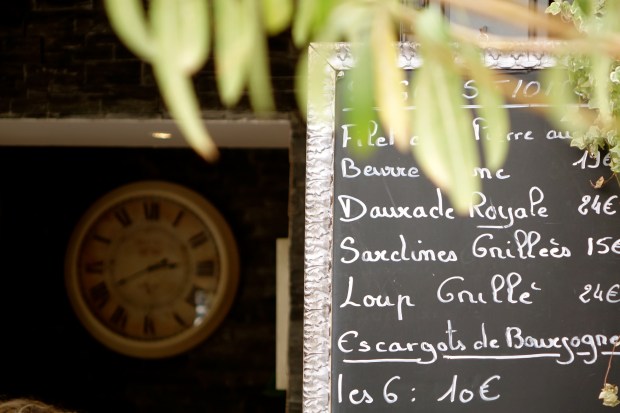 Filet Pierre au
Beurre 19€
Daurade Royale 24€
Sardines Grillées 15€
Loup Grillé 24€
Escargots de Bourgogne
les 6 : 10€